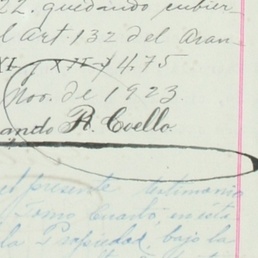 22. quedando cubier-
l Art. 132 del Aran-
XI y XII y 4.75
Nov. de 1923
ando R. Coello.
el presente testimonio
Tomo Cuarto, en ésta
la Propiedad, bajo la